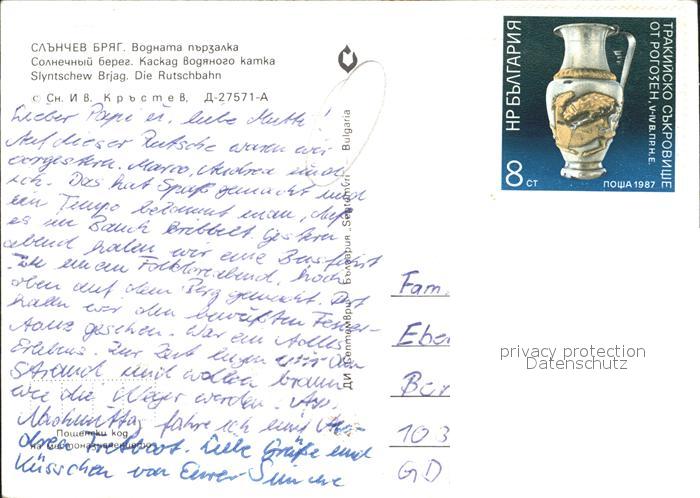 СЛЪНЧЕВ БРЯГ. Водната пързалка
Солнечный берег. Каскад водяного катка
Slyntschew Brjag. Die Rutschbahn
Сн. Ив. Кръстев, Д-27571-А
Lieber Papi u. liebe Mutti!
Auf dieser Rutsche waren wir
vorgestern. Marco, Andrea und
ich. Das hat Spaß gemacht und
ein Tempo bekommt man, daß
es im Bauch kribbelt. Gestern
abend haben wir eine Busfahrt
zu einem Folkloreabend, hoch
oben auf dem Berg gemacht. Dort
haben wir den berühmten Feuer-
tanz gesehen. War ein tolles
Erlebnis. Zur Zeit liegen wir am
Strand und wollen braun
wie die Neger werden. Am
Nachmittag fahre ich und An-
drea Tretboot. Liebe Grüße und
Küsschen von Eurer
Пощенски код
на местоназначението
ДИ „Септември" България „Septemvri" Bulgaria
НР БЪЛГАРИЯ
ТРАКИЙСКО СЪКРОВИЩЕ
ОТ РОГОЗЕН, V-IV В. ПР. Н. Е.
8 СТ
ПОЩА 1987
Fam.
Eber
Ber
103
GD
privacy protection
Datenschutz